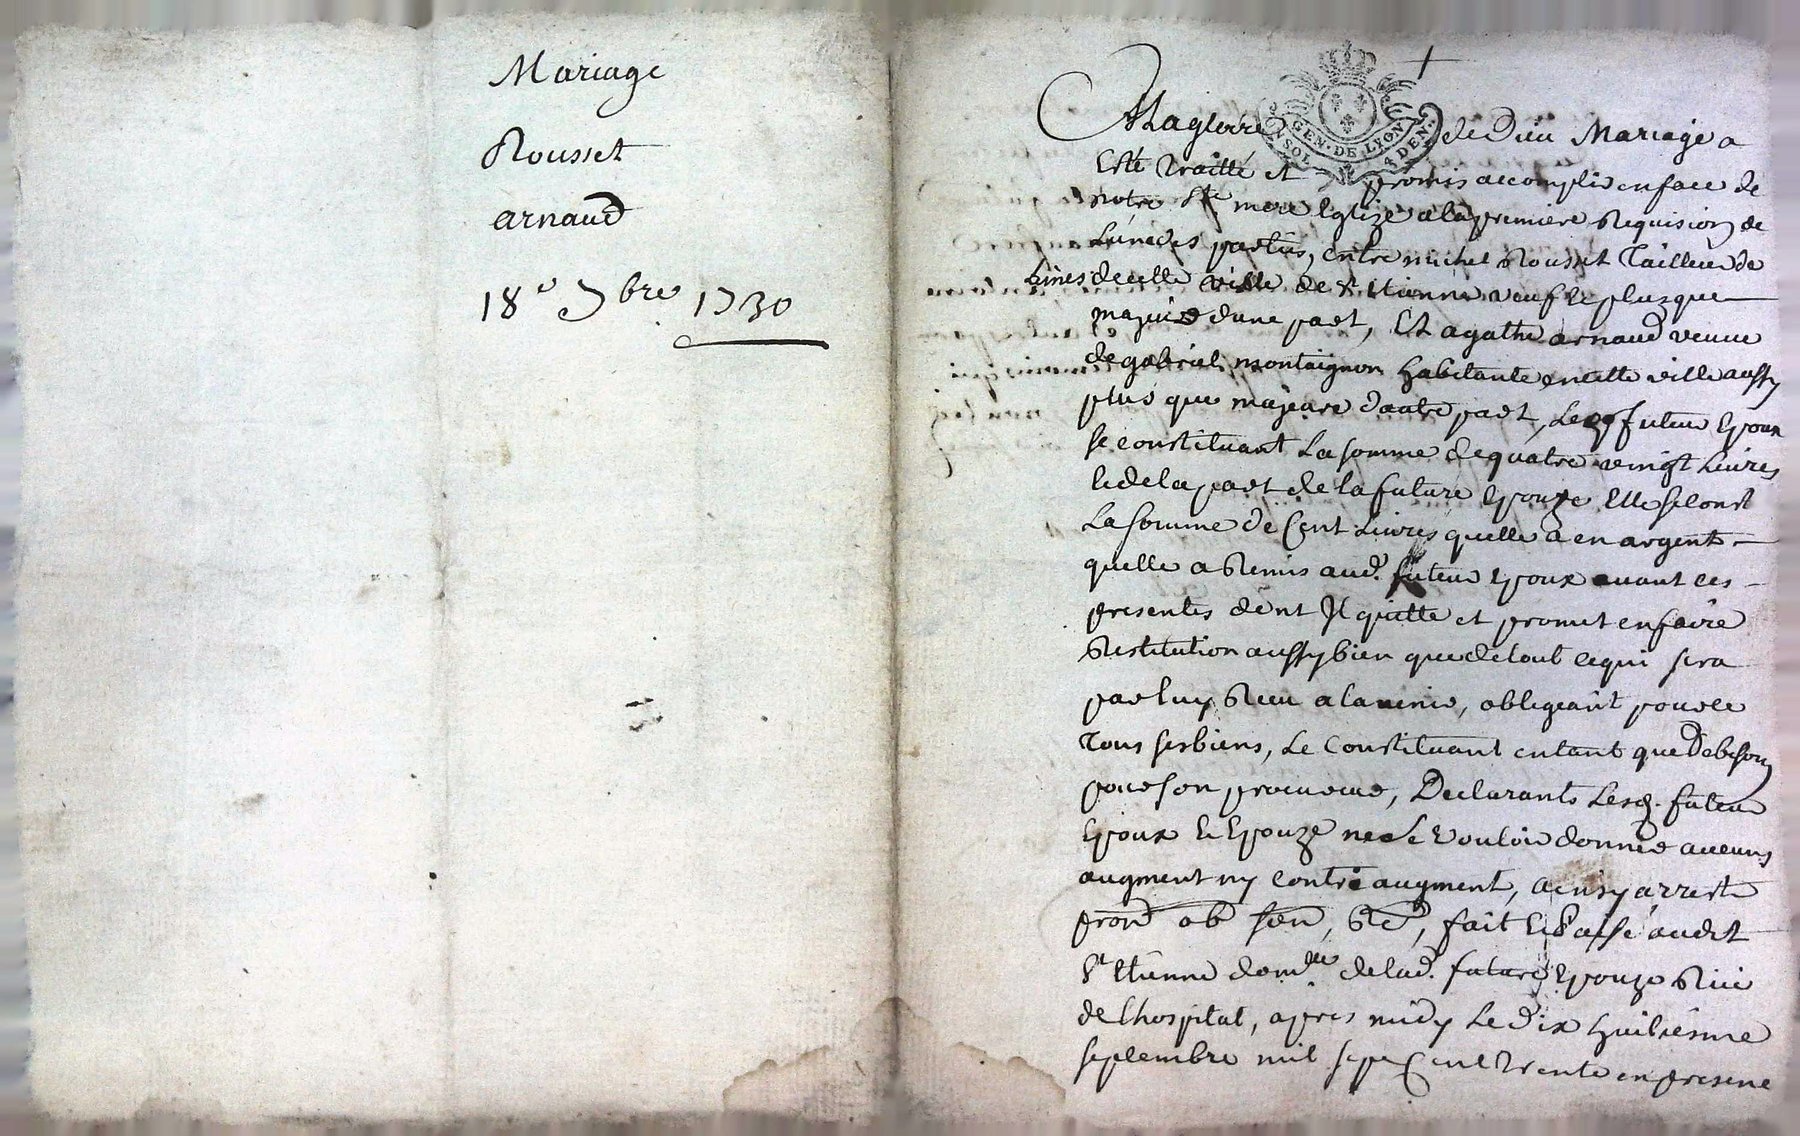 Mariage
Rousset
arnaud
18e 7bre 1730
GEN. DE LYON
SOL 4 DEN.
A La gloire de Dieu Mariage a
Esté traitté et promis accomplir en face de
notre Ste mere Eglize a la premiere Requision de
Lune des parties, entre michel Rousset Tailleur de
de cette ville de St Etienne veuf et plus que
majeur dune part, Et agathe arnaud veuve
de gabriel montaignon habitante en cette ville aussy
plus que majeure dautre part, Led futur Epoux
se constituant La somme de quatre vingt Livres
Et de la part de la future Epouze Elle se const
La somme de Cent Livres quelle a en argent
quelle a Remis aud. futur Epoux avant ces
presentes dont Il quitte et promet en faire
Restitution aussy bien que de tout ce qui sera
par luy Reçu a lavenir, obligeant pour ce
Tous ses biens, Le Constituant en tant que De besoin
pour son procureur, Declarants Lesd. futur
Epoux Et Epouze ne se vouloir donner aucuns
augment ny contre augment, ainsy arresté
prom ob sou, Re, fait Et Passé audt
St Etienne domlle de lad. future Epouze Rue
de Lhospital, apres midy Le dix huitiesme
septembre mil sept Cent Trente en presence